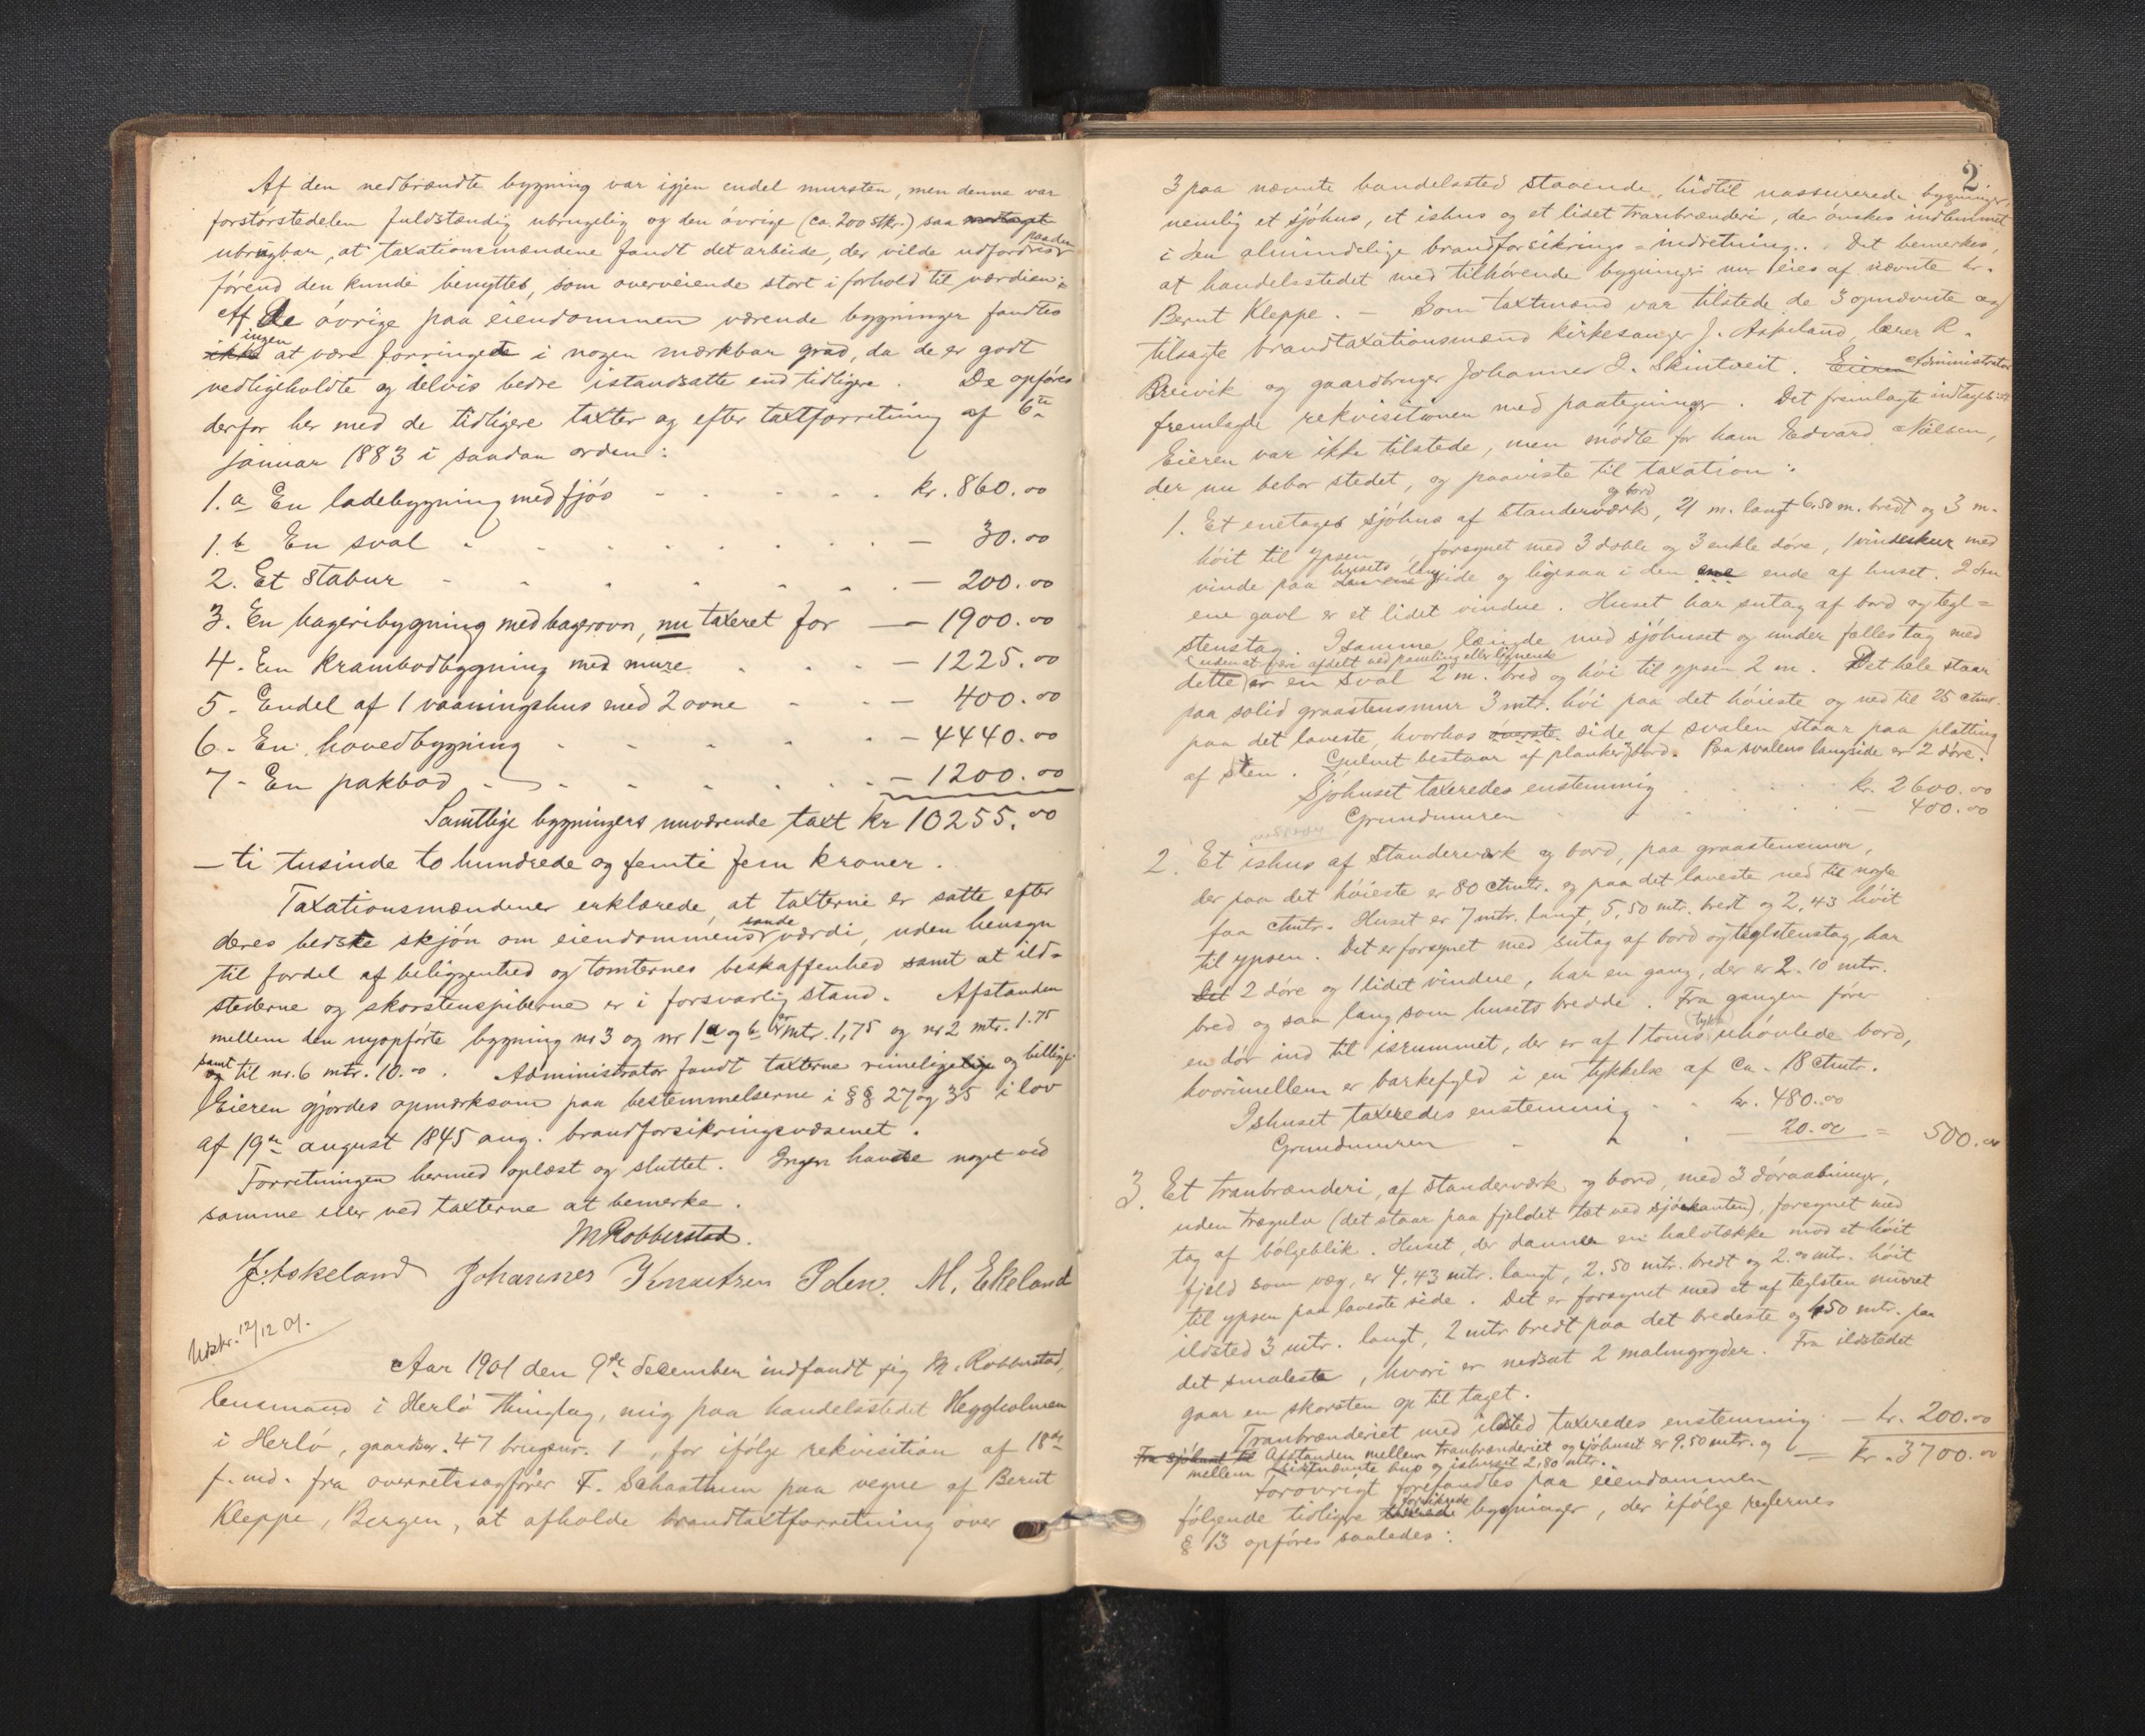 Af den nedbrændte bygning var igjen endel mursten, men denne var
forstørstedelen fuldstændig ubrugelig og den øvrige (ca. 200 stkr.) saa
ubrugbar, at taxationsmændene fandt det arbeide, der vilde udfordres paa den
førend den kunde benyttes, som overveiende stort i forhold til værdien.
Af De øvrige paa eiendommen værende bygninger fandtes
ikke ingen at være forringede i nogen mærkbar grad, da de er godt
vedligeholdte og delvis bedre istandsatte end tidligere. De opføres
derfor her med de tidligere taxter og efter taxtforretning af 6te
januar 1883 i saadan orden:
1.a En ladebygning med fjøs - - - - kr. 860.00
1.b En sval - - - - - - - 30.00
2. Et stabur - - - - - - 200.00
3. En bageribygning med bagerovn, nu taxeret for — 1900.00
4. En krambodbygning med mure - - - 1225.00
5. Endel af 1 vaaningshus med 2 ovne - - - 400.00
6. En hovedbygning - - - - - 4440.00
7. En pakbod - - - - - - 1200.00
Samtlige bygningers nuværende taxt kr 10255.00
— ti tusinde to hundrede og femti fem kroner.
Taxationsmændener erklærede, at taxterne er satte efter
deres bedste skjøn om eiendommens sande værdi, uden hensyn
til fordel af beliggenhed og tomternes beskaffenhed samt at ild-
stederne og skorstenspiberne er i forsvarlig stand. Afstanden
mellem den nyopførte bygning nr 3 og nr 1a og b er mtr. 1,75 og nr 2 mtr. 1.75
og samt til nr. 6 mtr. 10.00. Administrator fandt taxterne rimelige og billige.
Eieren gjordes opmærksom paa bestemmelserne i §§ 27 og 35 i lov
af 19de august 1845 ang. brandforsikringsvæsenet.
Forretningen hermed oplæst og sluttet. Ingen havde noget ved
samme eller ved taxterne at bemerke.
M Robberstad.
J. Askeland Johannes Knudtsen Oden. M. Ekeland
Udskr. 12/12 01.
Aar 1901 den 9de december indfandt sig M. Robberstad,
lensmand i Herlø thinglag, mig paa handelsstedet Heggholmen
i Herlø, gaardsnr. 47 brugsnr. 1, for ifølge rekvisition af 18de
f. md. fra overretssagfører F. Schaathun paa vegne af Bernt
Kleppe, Bergen, at afholde brandtaxtforretning over
2
3 paa nævnte handelssted staaende, hidtil uassurerede bygninger,
nemlig et sjøhus, et ishus og et lidet tranbrænderi, der ønskes indlemmet
i den almindelige brandforsikrings-indretning. Det bemerkes,
at handelsstedet med tilhørende bygninger nu eies af nævnte hr.
Bernt Kleppe. — Som taxtmænd var tilstede de 3 opnævnte og
tilsagte brandtaxationsmænd kirkesanger J. Askeland, lærer R.
Breivik og gaardbruger Johannes J. Skintveit. Eieren Administrator
fremlagde rekvisitionen med paategninger. Det fremlagte indtages
Eieren var ikke tilstede, men mødte for ham Edvard Nielsen,
der nu bebor stedet, og paaviste til taxation:
1. Et enetages sjøhus af standerværk og bord, 21 m. langt 6.50 m. bredt og 3 m.
høit til ypsen, forsynet med 3 doble og 3 enkle døre, 1 vindeskur med
vinde paa husets langside og ligesaa i den ene ende af huset. I den
ene gavl er et lidet vindue. Huset har sutag af bord og tegl-
stenstag. I samme længde med sjøhuset og under fælles tag med
dette (uden at være afdelt ved paneling eller lignende) er en sval 2 m. bred og høi til ypsen 2 m. Det hele staar
paa solid graastensmur 3 mtr. høi paa det høieste og ned til 25 ctmr.
paa det laveste, hvorhos øverste side af svalen staar paa platting
af sten. Gulvet bestaar af planker og bord. Paa svalens langside er 2 døre.
Sjøhuset taxeredes enstemmig kr. 2600.00
Grundmuren — 400.00
2. Et ishus af standerværk og bord, paa graastensmur,
der paa det høieste er 80 ctmtr. og paa det laveste ned til nogle
faa ctmtr. Huset er 7 mtr. langt, 5,50 mtr. bredt og 2,43 høit
til ypsen. Det er forsynet med sutag af bord og teglstenstag, har
Det 2 døre og 1 lidet vindue, har en gang, der er 2.10 mtr.
bred og saa lang som husets bredde. Fra gangen fører
en dør ind til isrummet, der er af 1 toms (tykke) uhøvlede bord,
hvorimellem er barkefyld i en tykkelse af ca. 18 ctmtr.
Ishuset taxeredes enstemmig - - kr. 480.00
Grundmuren - - - 20.00 = 500.00
3. Et tranbrænderi, af standerværk og bord, med 3 døraabninger,
uden trægulv (det staar paa fjeldet tæt ved sjøkanten), forsynet med
tag af bølgeblik. Huset, der danner en halvtække mod et høit
fjeld som væg, er 4,43 mtr. langt, 2.50 mtr. bredt og 2.00 mtr. høit
til ypsen paa laveste side. Det er forsynet med et af teglsten muret
ildsted 3 mtr. langt, 2 mtr bredt paa det bredeste og 1.50 mtr. paa
det smaleste, hvori er nedsat 2 malmgryder. Fra ildstedet
gaar en skorsten op til taget.
Tranbrænderiet med ildsted taxeredes enstemmig — kr. 200.00
Fra sjøhuset til Afstanden mellem tranbrænderiet og sjøhuset er 9.50 mtr. og — kr. 3700.00
mellem sistnævnte hus og ishuset 2,80 mtr.
Forøvrigt forefandtes paa eiendommen
følgende tidligere forsikrede bygninger, der ifølge reglernes
§ 13 opføres saaledes: